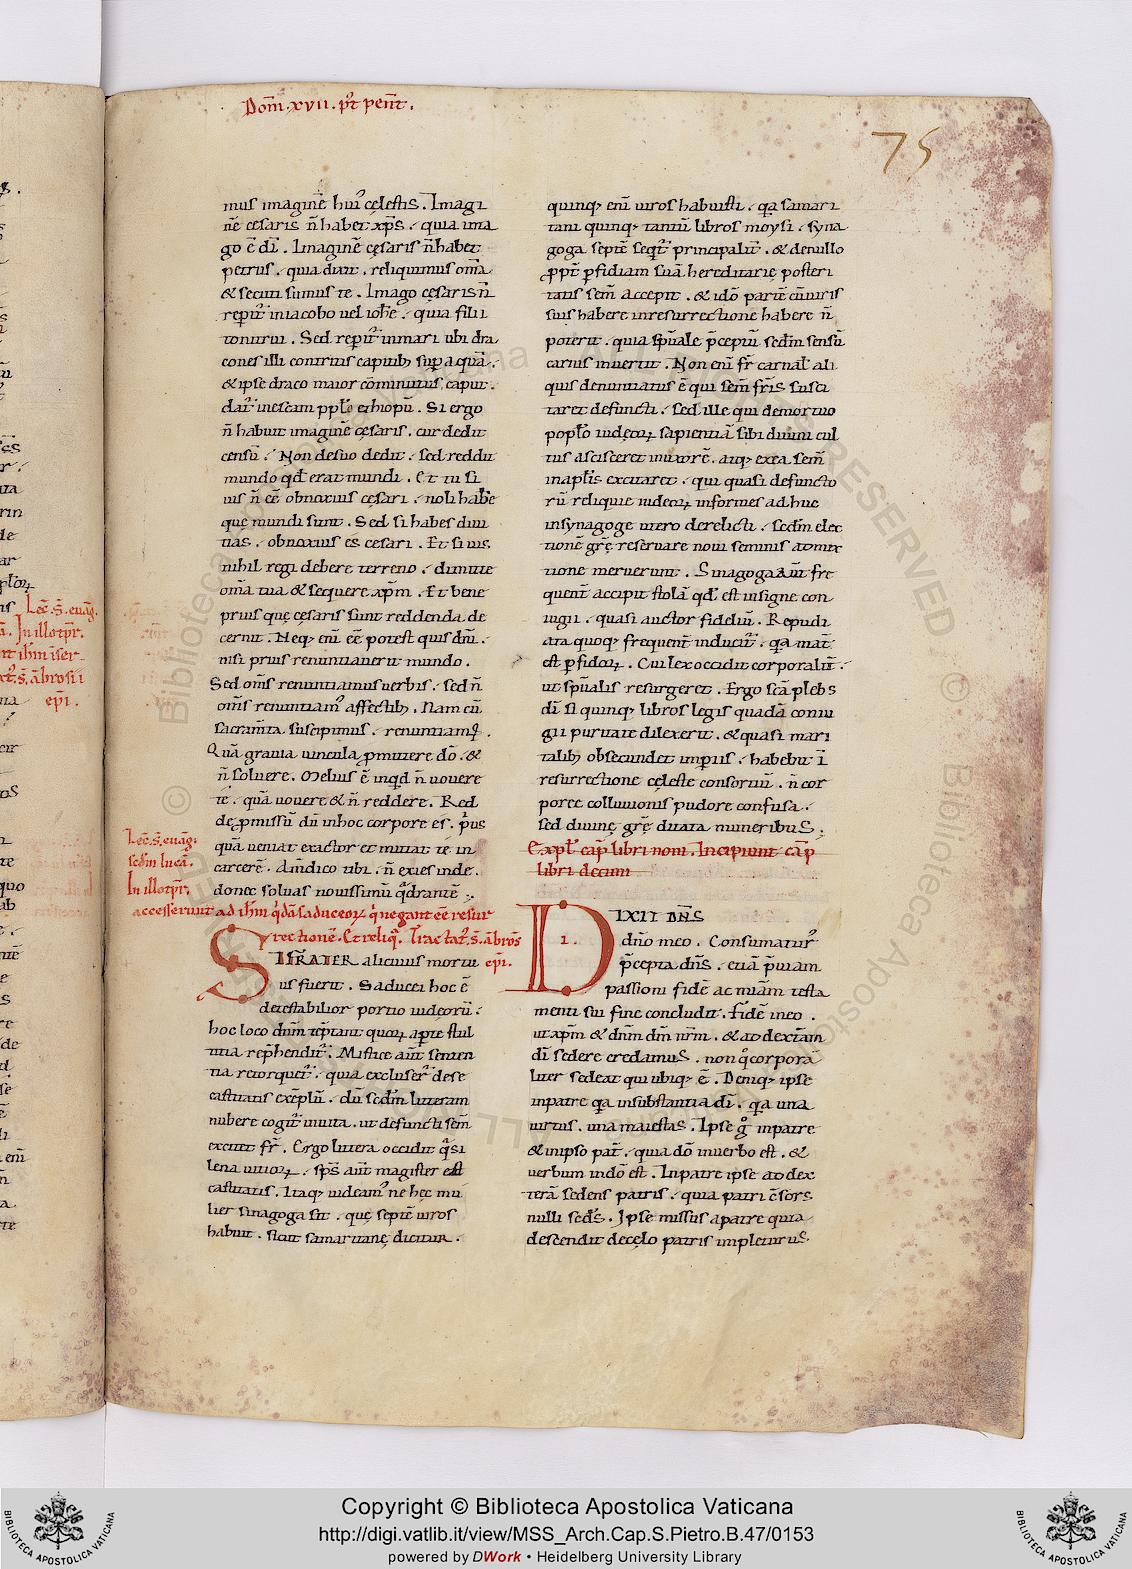 Dom̄. xvii. p̄t pent̄.
75
mus imaginē hui᾽ cęlestis. Imagi
nē cesaris n̄ habet xp̄s. quia ima
go ē dī. Imaginē cęsaris n̄ habet
petrus. quia dixit. reliquimus om̄ia
& secuti sumus te. Imago cęsaris n̄
rep̄it᾽ in iacobo uel ioh̄e. quia filii
tonitrui. Sed rep̄it᾽ in mari ubi dra
cones illi contritis capitib; sup̄ aquā.
& ipse draco maior cōminutus caput.
dat᾽ in escam ppl̄o ethiopū. Si ergo
n̄ habuit imaginē cęsaris. cur dedit
censū? Non de suo dedit. sed reddit
mundo qd̄ erat mundi. Et tu si
uis n̄ ēē obnoxius cęsari. noli hab̄e
quę mundi sunt. Sed si habes diui
tias. obnoxius es cesari. Et si uis
nihil regi debere terreno. dimitte
om̄a tua & sequere xp̄m. Et bene
prius quę cęsaris sunt reddenda de
cernit. Neq; enī ēē potest quis dn̄i.
nisi prius renuntiauerit mundo.
Sed om̄s renuntiamus uerbis. sed n̄
om̄s renuntiam᾽ affectib;. Nam cū
sacram̄ta suscipimus. renuntiam᾽.
Quā grauia uincula p̄mittere dō. &
n̄ soluere. Melius ē inqd̄ n̄ uouere
te. quā uouere & n̄ reddere. Red
de p̄missū dū in hoc corpore es. p᾽us
quā ueniat exactor et mittat te in
carcerē. Am̄ dico tibi. n̄ exies inde.
donec soluas nouissimū q᾽drantē.
Lec̄. s̄. euāḡ.
scdm lucā.
In illo tp̄r.
accesserunt ad ih̄m q᾽dā saduceoꝝ q᾽ negant ēē resur
rectionē. Et reliq᾽. Tractat᾽. s̄. ābros̄
ep̄i.
SI FRATER alicuius mortu
us fuerit. Saducei hoc ē
detestabilior portio iudęorū.
hoc loco dn̄m tēptant quoꝝ ap̄te stul
titia rep̄hendit᾽. Mistice aut̄ senten
tia retorquet᾽. quia excluser᾽ de se
castitatis exēplū. dū scdm litteram
nubere cogit᾽ inuita. ut defuncti sem̄
excitet fr̄. Ergo littera occidit q᾽si
lena uitioꝝ. sp̄s aut̄ magister est
castitatis. Itaq; uideam᾽ ne hęc mu
lier sinagoga sit. quę septē uiros
habuit. sicut samaritanę dicitur.
quinq; enī uiros habuisti. qa samari
tani quinq; tantū libros moysi. syna
goga septē seqt᾽ principalit̄. & de nullo
ppt̄ p̄fidiam suā hereditarię posteri
tatis sem̄ accepit. & idō partē cū uiris
suis habere in resurrectione habere n̄
poterit. quia spūale p̄ceptū scdm sensū
carnis inuertit. Non enī fr̄ carnal᾽ ali
quis denuntiatus ē qui sem̄ fr̄is susci
taret defuncti. sed ille qui de mortuo
popl̄o iudęoꝝ sapientiā sibi diuini cul
tus ascisceret in uxorē. atq; ex ea sem̄
in apl̄is excitaret. qui quasi defuncto
rū reliquie iudeoꝝ informes adhuc
in synagoge utero derelicti. scdm elec
tionē grē reseruare noui seminis admix
tione meruerunt. Sinagoga aut̄ fre
quent̄ accipit stolā qd̄ est insigne con
iugii. quasi auctor fidelium. Repudi
ata quoq; frequent̄ inducit᾽. qa mat̄
est p̄fidoꝝ. Cui lex occidit corporalit̄.
ut sp̄ualis resurgeret. Ergo scā plebs
dī si quinq; libros legis quadā coniu
gii puritate dilexerit. & quasi mari
talib; obsecundet imp̄iis. habebit ī
resurrectione cęleste consortiū. n̄ cor
poreę colluuionis pudore confusa.
sed diuinę grē ditata muneribus.
Expl̄ cap̄ libri noni. Incipiunt cāp
libri decimi
DIXIT DN̄S
1.
dn̄o meo. Consumatur᾽
p̄cepta dn̄s. etiā p̄uiam
passioni fidē ac n̄ram testa
menti sui fine concludit. Fidē in eo.
ut xp̄m & dn̄m dm̄ nr̄m. & ad dext̄am
dī sedere credamus. non q᾽ corpora
liter sedeat qui ubiq; ē. Deniq; ipse
in patre qa in substantia dī. qa una
uirtus. una maiestas. Ipse g᾽ in patre
& in ipso pat̄. quia dō in uerbo est. &
uerbum in dō est. In patre ipse ad dex
terā sedens patris. quia patri c̄sors
nulli scd̄s. Ipse missus a patre quia
descendit de cęlo patris impleturus
Lec̄. s̄. euāḡ.
In illo tp̄r.
ep̄i.
Copyright © Biblioteca Apostolica Vaticana
http://digi.vatlib.it/view/MSS_Arch.Cap.S.Pietro.B.47/0153
powered by DWork • Heidelberg University Library
BIBLIOTECA APOSTOLICA VATICANA
BIBLIOTECA APOSTOLICA VATICANA